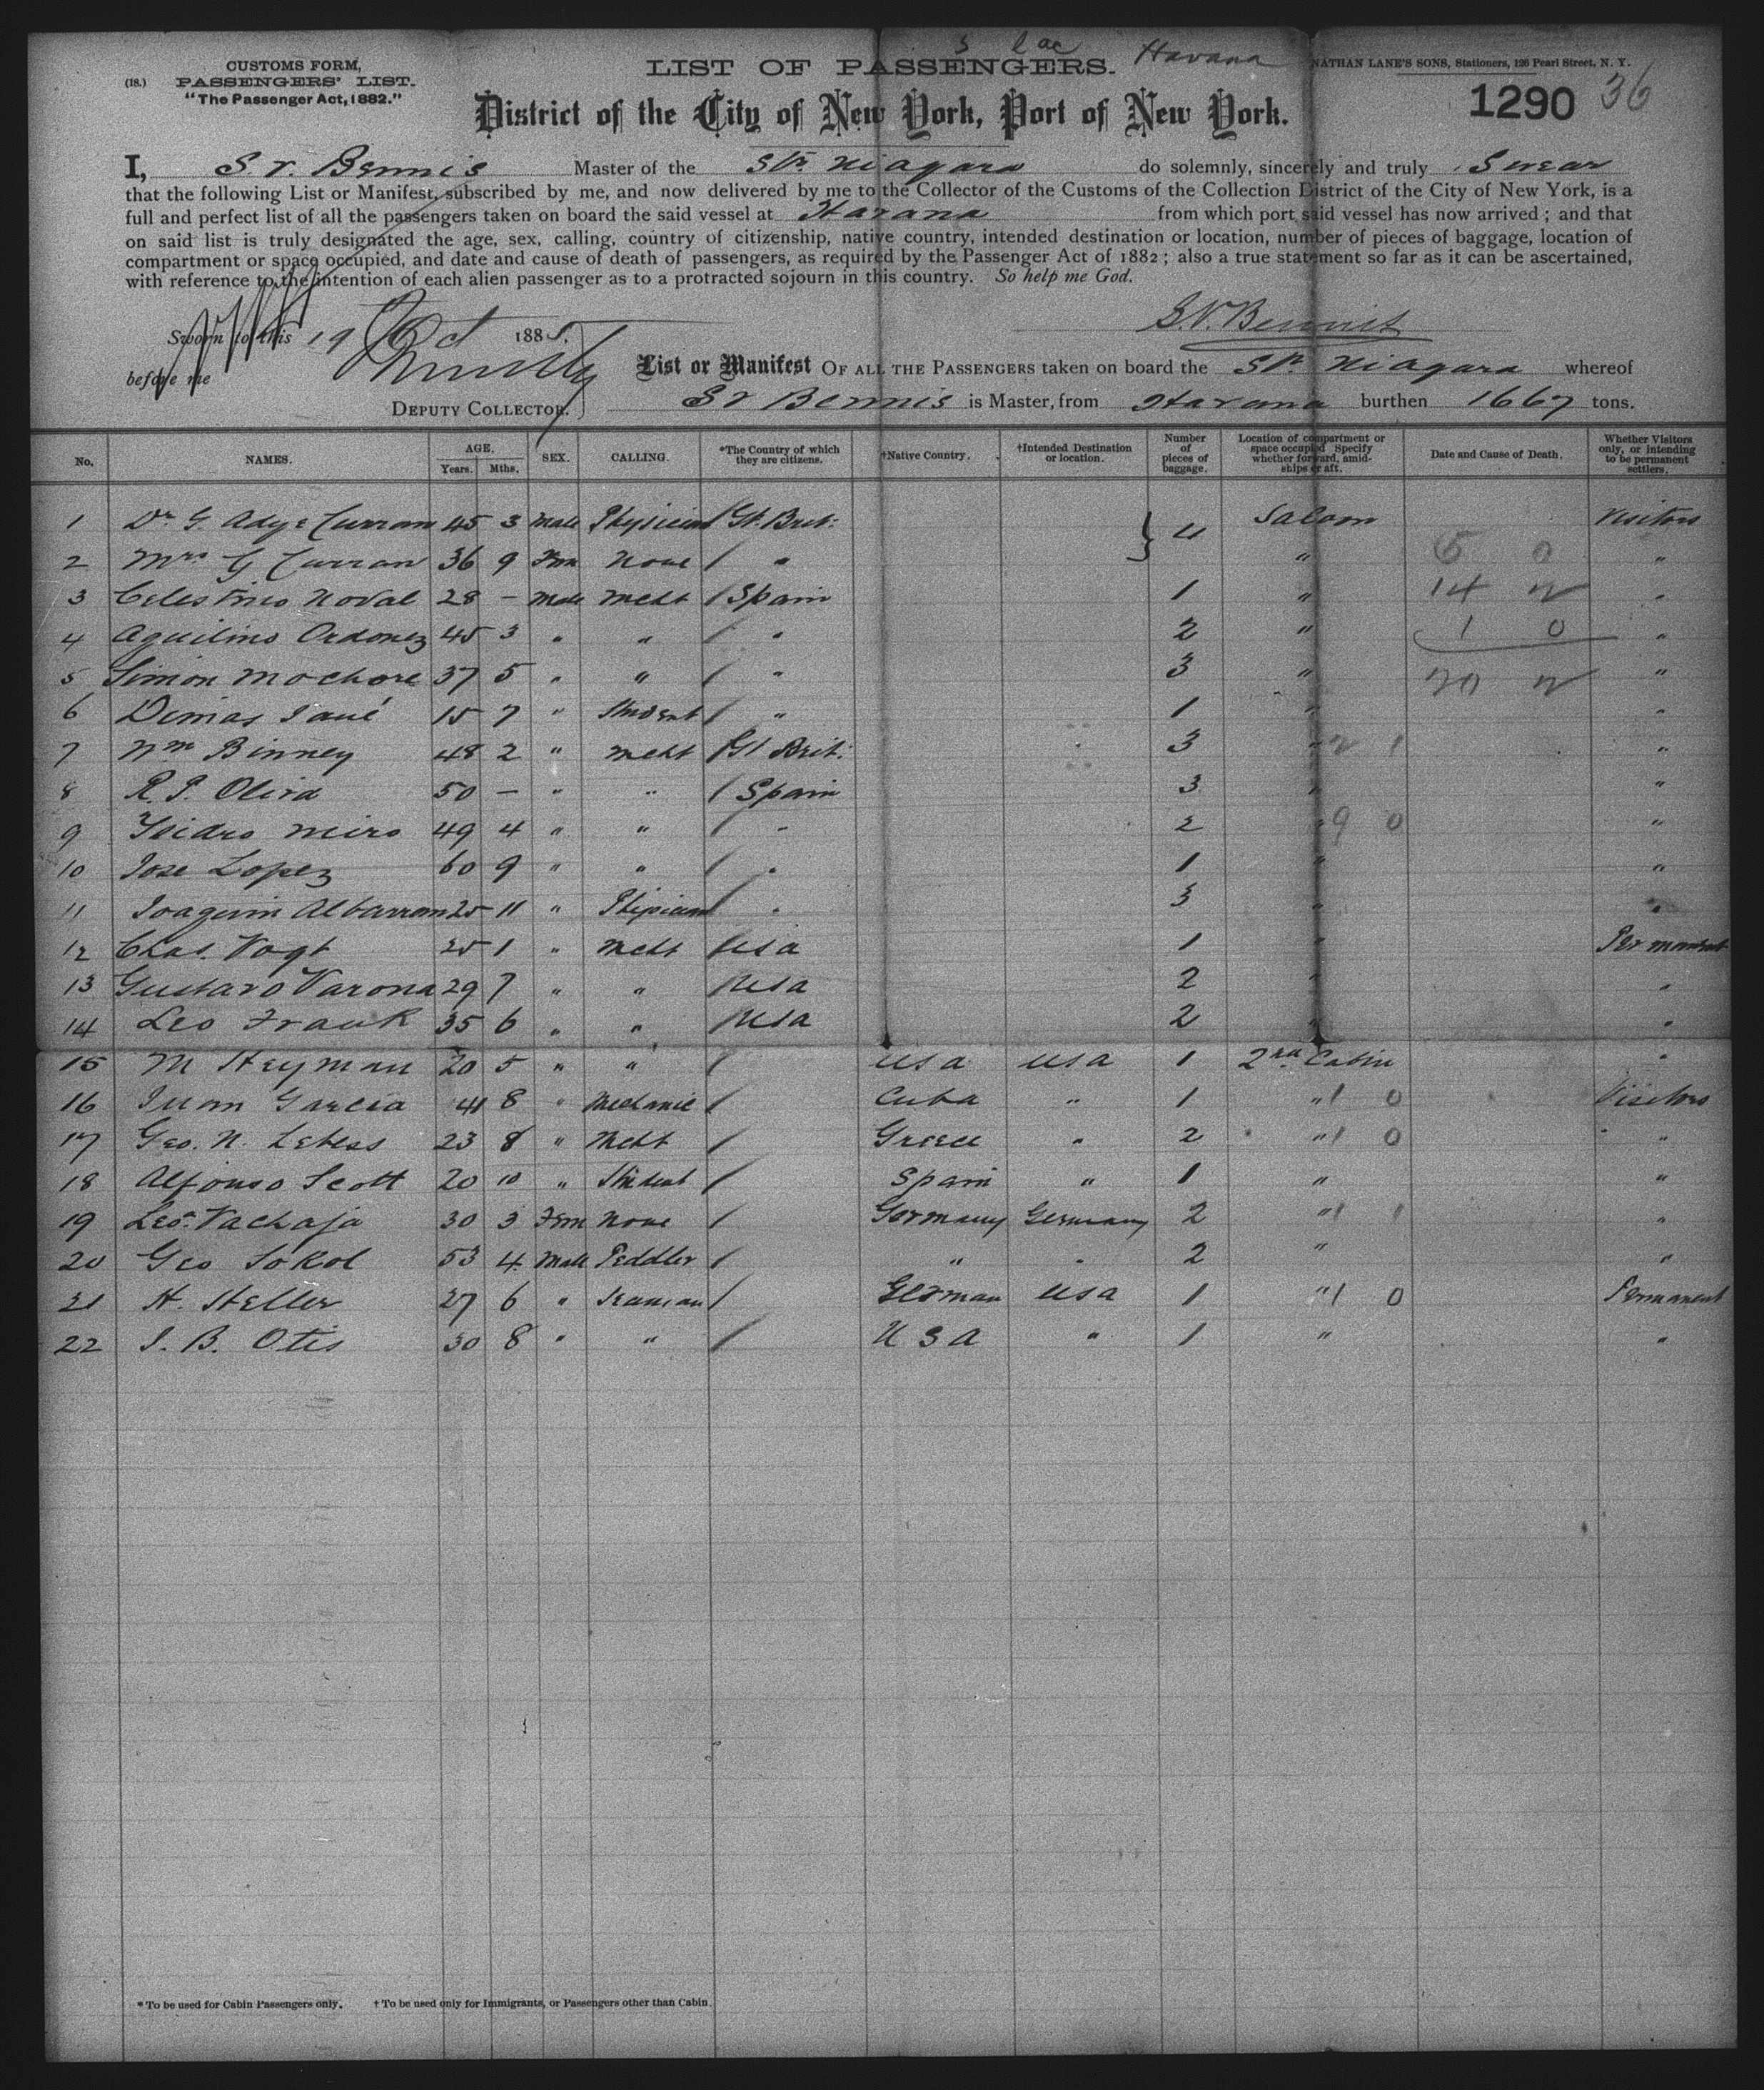 Havana
(18.) CUSTOMS FORM,
PASSENGERS' LIST.
"The Passenger Act, 1882."
LIST OF PASSENGERS.
NATHAN LANE'S SONS, Stationers, 126 Pearl Street, N. Y.
District of the City of New York, Port of New York.
1290 36
I, S V. Bennis Master of the Str. Niagara do solemnly, sincerely and truly Swear
that the following List or Manifest, subscribed by me, and now delivered by me to the Collector of the Customs of the Collection District of the City of New York, is a
full and perfect list of all the passengers taken on board the said vessel at Havana from which port said vessel has now arrived; and that
on said list is truly designated the age, sex, calling, country of citizenship, native country, intended destination or location, number of pieces of baggage, location of
compartment or space occupied, and date and cause of death of passengers, as required by the Passenger Act of 1882; also a true statement so far as it can be ascertained,
with reference to the intention of each alien passenger as to a protracted sojourn in this country. So help me God.
Sworn to this 19 Oct 1885.
before me
DEPUTY COLLECTOR.
S.V. Bennis
List or Manifest OF ALL THE PASSENGERS taken on board the Str. Niagara whereof
S V Bennis is Master, from Havana burthen 1667 tons.
No. NAMES. AGE. Years. Mths. SEX. CALLING. *The Country of which they are citizens. †Native Country. †Intended Destination or location. Number of pieces of baggage. Location of compartment or space occupied Specify whether forward, amidships or aft. Date and Cause of Death. Whether Visitors only, or intending to be permanent settlers.
1 Dr G. Adye Curran 45 3 Male Physician / Gt. Brit: } 4 Saloon Visitors
2 Mrs G Curran 36 9 Fem None / " " 5 0 "
3 Celestino Noval 28 – Male Mcht / Spain 1 " 14 2 "
4 Aquilino Ordonez 45 3 " " / " 2 " 1 0 "
5 Simon Mochore 37 5 " " / " 3 " 20 2 "
6 Dimas Jané 15 7 " Student / " 1 " "
7 Wm Binney 48 2 " Mcht / Gt Brit: 3 " 2 1 "
8 R. P. Oliva 50 – " " / Spain 3 " "
9 Isidro Miro 49 4 " " / " 2 " 9 0 "
10 Jose Lopez 60 9 " " / " 1 " "
11 Joaquin Albarran 25 11 " / " 3 " "
12 Chas. Vogt 25 1 " Mcht / USA 1 " Permanent
13 Gustavo Varona 29 7 " " / USA 2 " "
14 Leo Frank 35 6 " " / USA 2 " "
15 M Heyman 20 5 " " / USA USA 1 2nd Cabin "
16 Juan Garcia 41 8 " Mechanic / Cuba " 1 " 1 0 Visitors
17 Geo. N. Lekas 23 8 " Mcht / Greece " 2 " 1 0 "
18 Alfonso Scott 20 10 " Student / Spain " 1 " "
19 Vachaja 30 3 Fem None / Germany Germany 2 " 1 1 "
20 Geo Sokol 53 4 Male Peddler / " " 2 " "
21 H. Heller 27 6 " Seaman / German USA 1 " 1 0 Permanent
22 J. B. Otis 30 8 " " / U S A " 1 " "
* To be used for Cabin Passengers only. † To be used only for Immigrants, or Passengers other than Cabin.